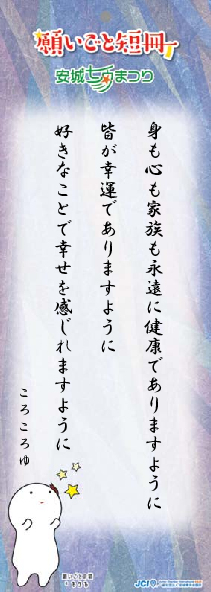 願いごと短冊
安城七夕まつり
身も心も家族も永遠に健康でありますように
皆が幸運でありますように
好きなことで幸せを感じれますように
ころころゆ
願いごと短冊
JCI